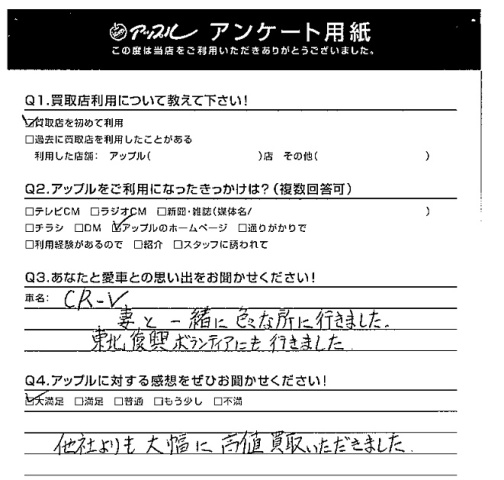 アップル アンケート用紙
この度は当店をご利用いただきありがとうございました。
Q1.買取店利用について教えて下さい!
☑買取店を初めて利用
□過去に買取店を利用したことがある
利用した店舗: アップル( )店 その他( )
Q2.アップルをご利用になったきっかけは?(複数回答可)
□テレビCM □ラジオCM □新聞・雑誌(媒体名/ )
□チラシ □DM ☑アップルのホームページ □通りがかりで
□利用経験があるので □紹介 □スタッフに誘われて
Q3.あなたと愛車との思い出をお聞かせください!
車名: CR-V
妻と一緒に色々な所に行きました。
東北復興ボランティアにも行きました
Q4.アップルに対する感想をぜひお聞かせください!
☑大満足 □満足 □普通 □もう少し □不満
他社よりも大幅に高値買取いただきました